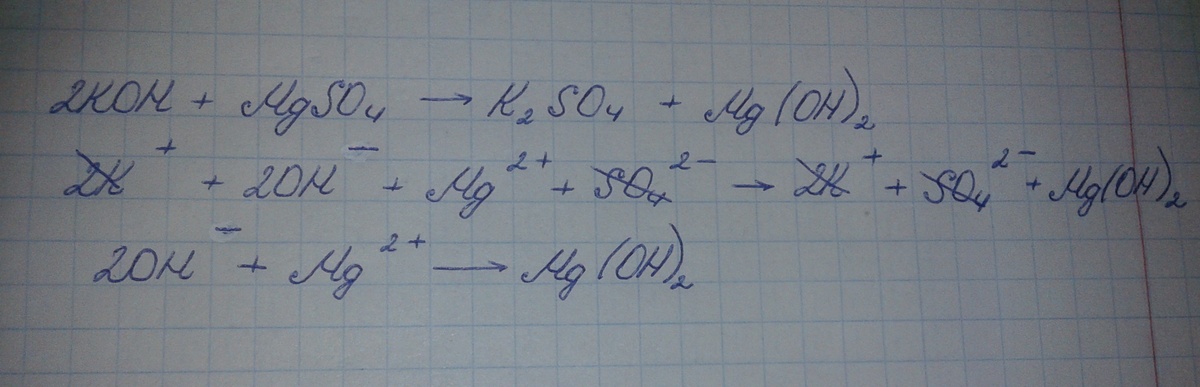 2KOH + MgSO₄ → K₂SO₄ + Mg(OH)₂
2K⁺ + 2OH⁻ + Mg²⁺ + SO₄²⁻ → 2K⁺ + SO₄²⁻ + Mg(OH)₂
2OH⁻ + Mg²⁺ → Mg(OH)₂